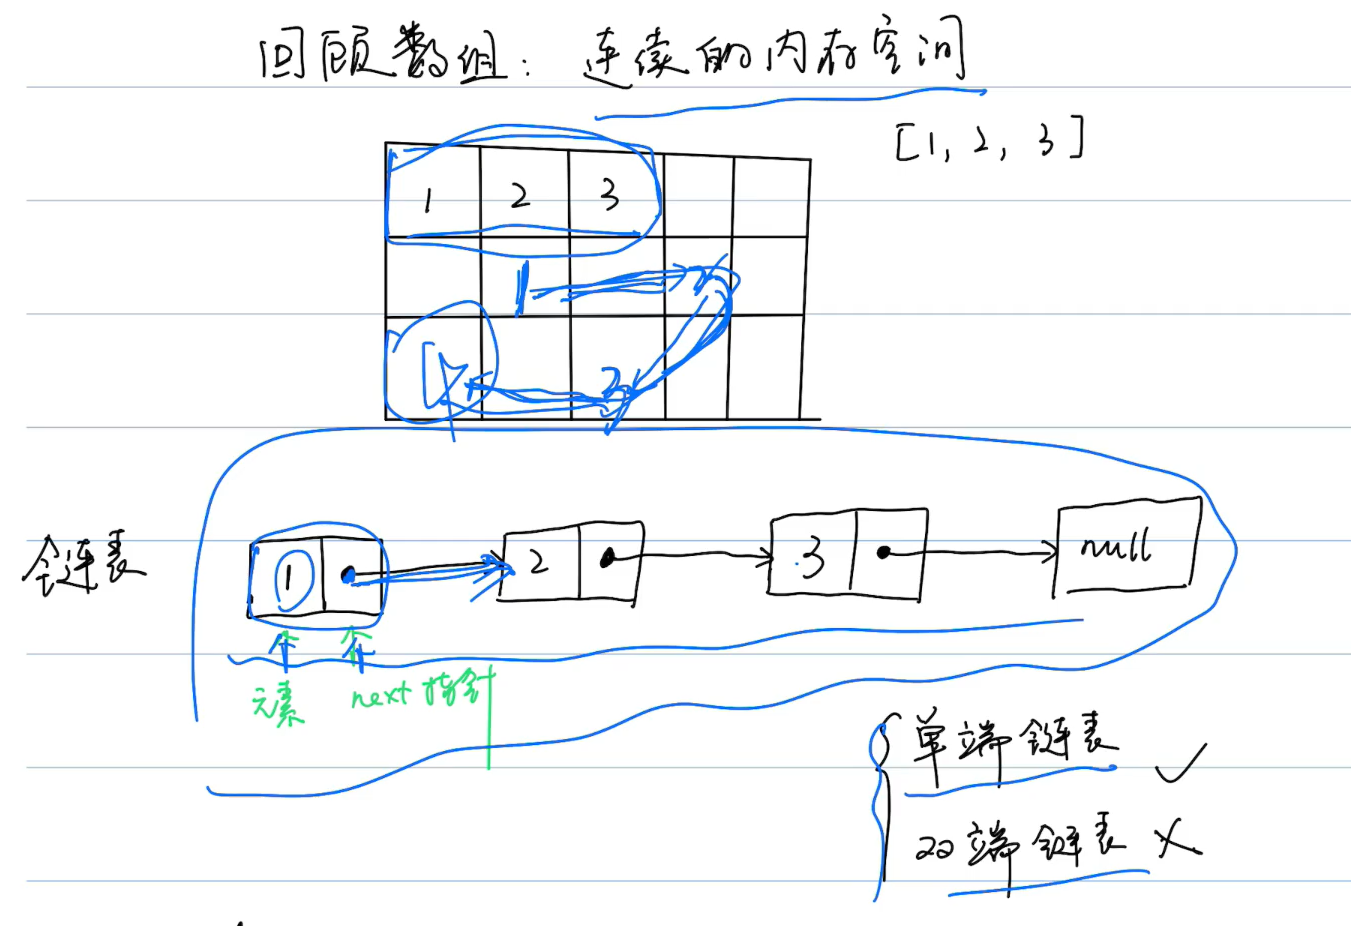 回顾数组：连续的内存空间
[1, 2, 3]
1 2 3
1
链表
1 2 3 null
元素 next指针
单端链表 ✓
双端链表 ×